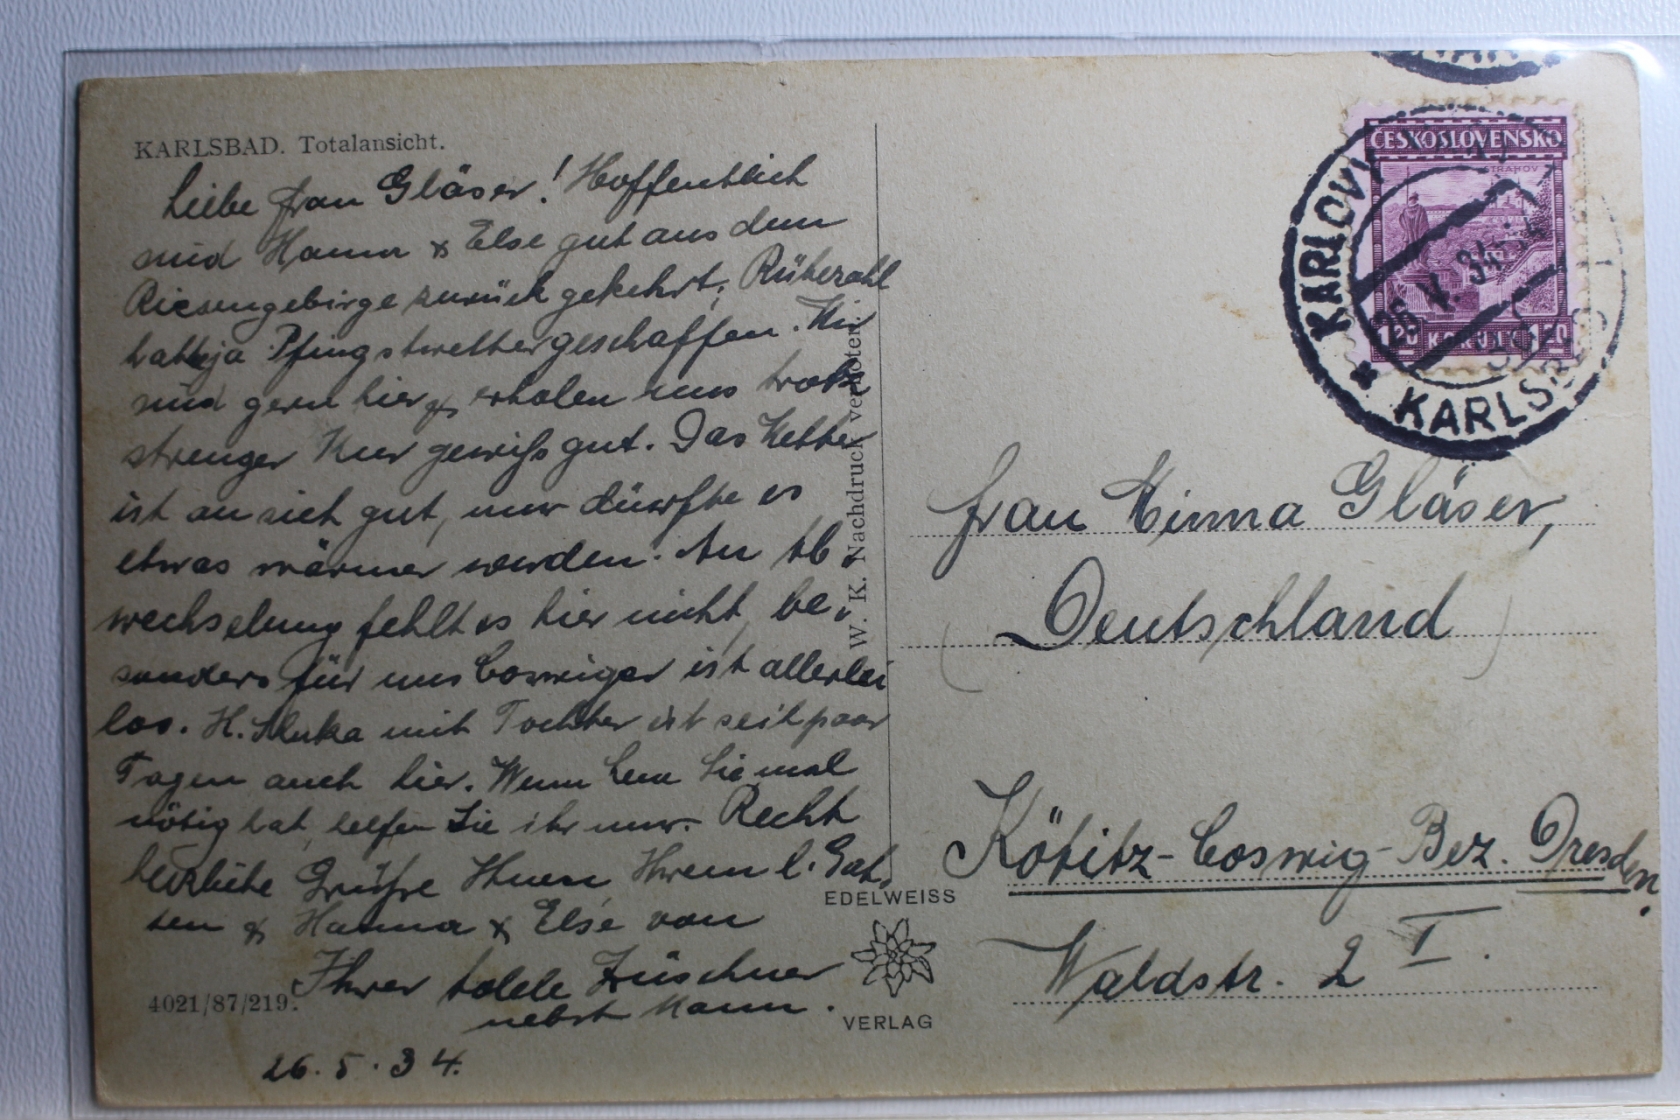 KARLSBAD. Totalansicht.
Liebe Frau Gläser! Hoffentlich
sind Hanna & Else gut aus dem
Riesengebirge zurück gekehrt; Rübezahl
hat ja Pfingstwetter geschaffen. Wir
sind gern hier & erholen uns trotz
strenger Kur gewiß gut. Das Wetter
ist an sich gut, nur dürfte es
etwas wärmer werden. An Ab-
wechselung fehlt es hier nicht, be-
sonders für uns Coswiger ist allerlei
los. H. mit Tochter ist seit paar
Tagen auch hier. Wenn Sie mal
nötig hat, helfen Sie ihr nur. Recht
herzliche Grüße Ihnen Ihrem l. Gat-
ten & Hanna & Else von
Ihrer
nebst Mann.
26.5.34.
4021/87/219.
W. K. Nachdruck verboten.
EDELWEISS
VERLAG
ČESKOSLOVENSKO
STRAHOV
1.20 KORUNA 1.20
KARLOVY
26.V.34
KARLSB
Frau Minna Gläser,
(Deutschland)
Kötitz-Coswig-Bez. Dresden.
Waldstr. 2 I.